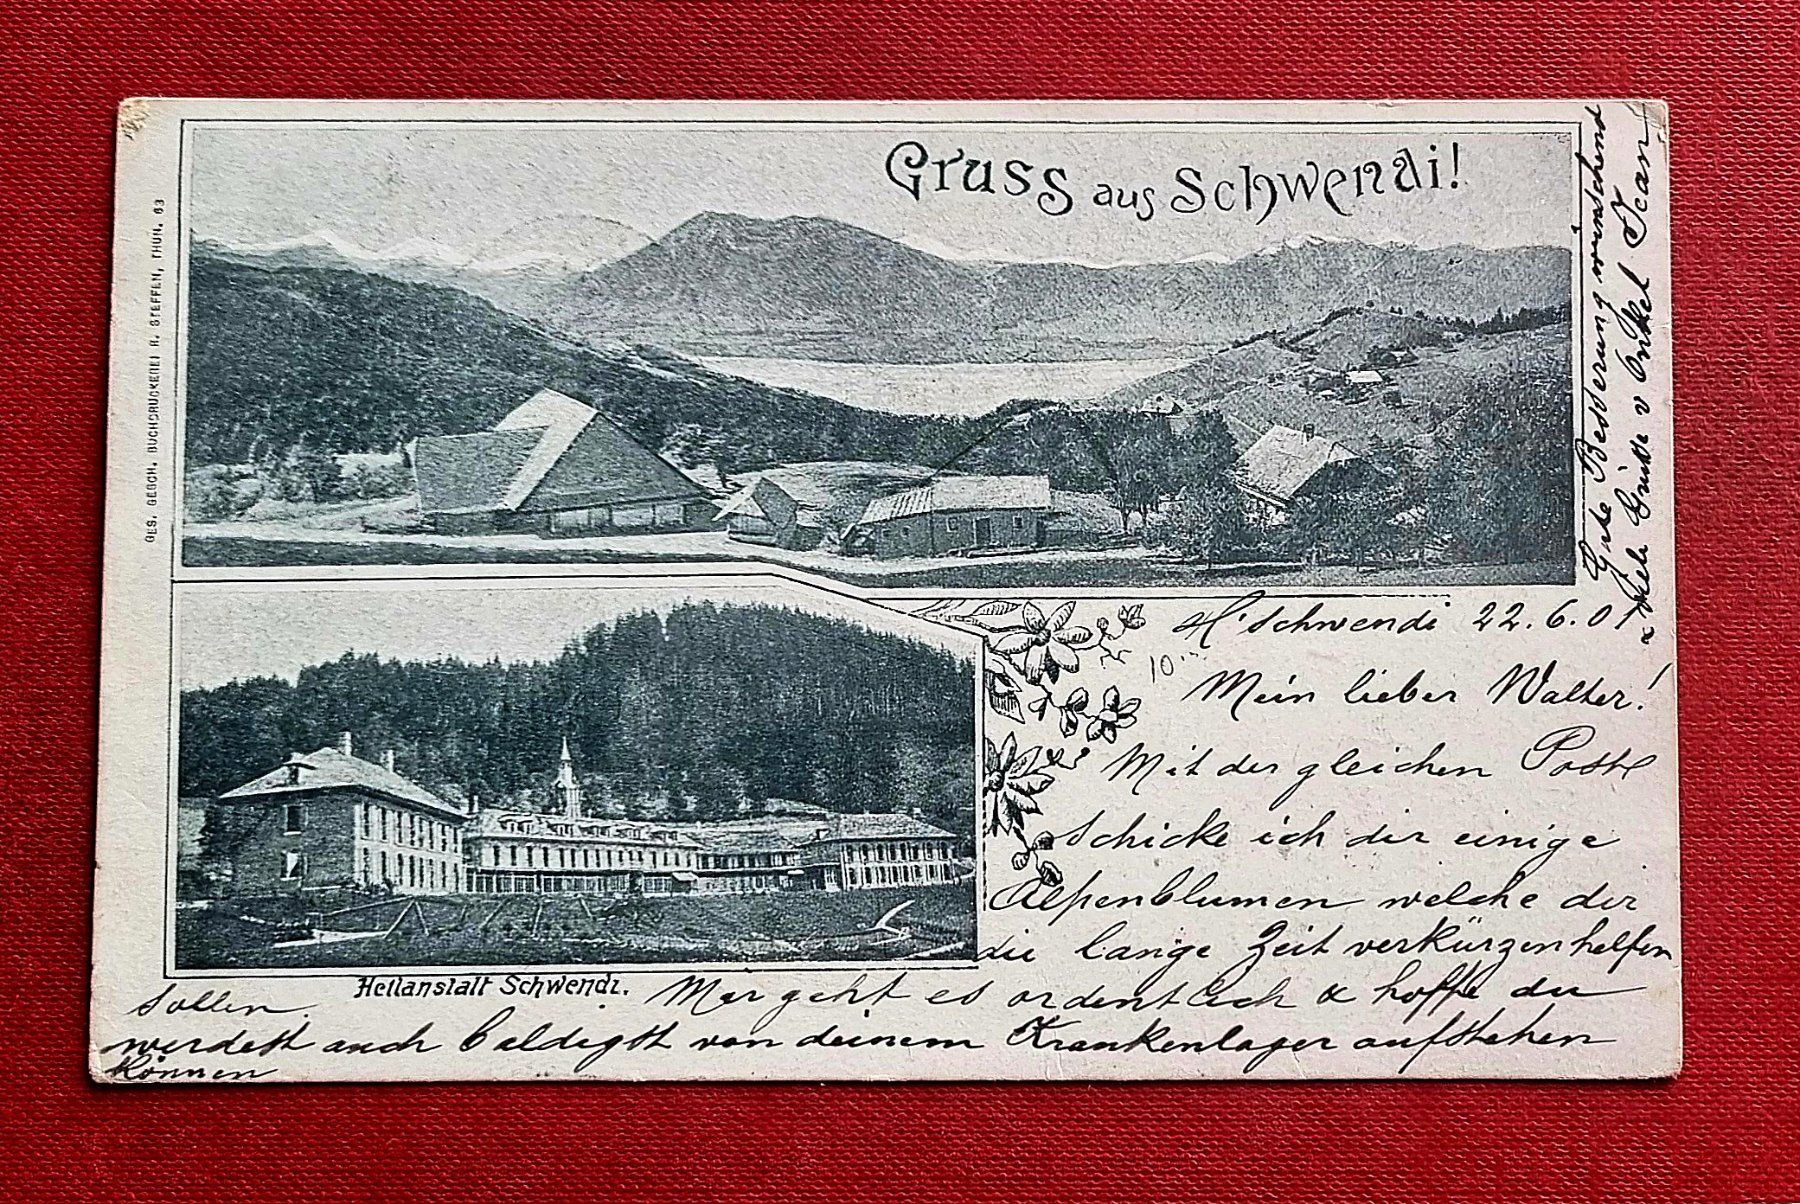 Gruss aus Schwendi!
GES. GESCH. BUCHDRUCKEREI R. STEFFEN, THUN. 63
H'schwendi 22.6.01
10
Mein lieber Walter!
Mit der gleichen Post
schicke ich dir einige
Alpenblumen welche dir
die lange Zeit verkürzen helfen
sollen. Mir geht es ordentlich & hoffe du
werdest auch baldigst von deinem Krankenlager aufstehen
können
Heilanstalt Schwendi.
Gute Besserung wünschend
viele Grüsse v Onkel Jean